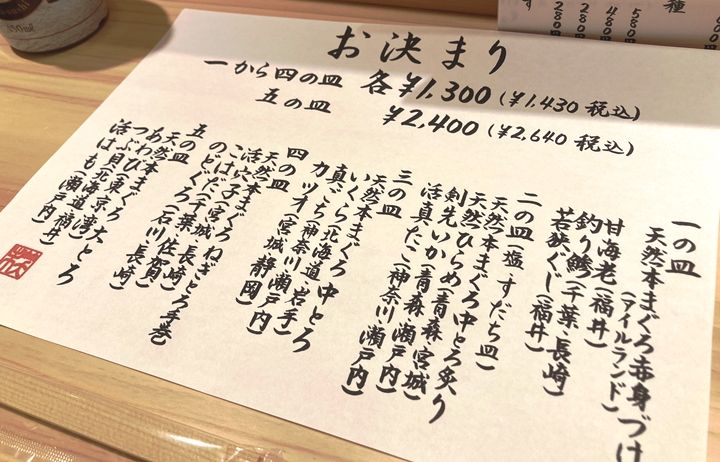 お決まり
一から四の皿 各¥1,300(¥1,430 税込)
五の皿 ¥2,400(¥2,640 税込)
一の皿
天然本まぐろ赤身づけ
(アイルランド)
甘海老(福井)
釣り鯵(千葉、長崎)
若狭ぐじ(福井)
二の皿(塩・すだち皿)
天然本まぐろ中とろ炙り
天然ひらめ(青森、宮城)
剣先いか(青森、瀬戸内)
活真だこ(神奈川、瀬戸内)
三の皿
天然本まぐろ 中とろ
いくら(北海道、岩手)
真こち(神奈川、瀬戸内)
カツオ(宮城、静岡)
四の皿
天然本まぐろ ねぎとろ手巻
活穴子(宮城、長崎)
こはだ(千葉、佐賀)
のどぐろ(石川、長崎)
五の皿
天然本まぐろ 大とろ
あわび(東京湾)
つぶ貝(北海道)
活はも(瀬戸内、福井)